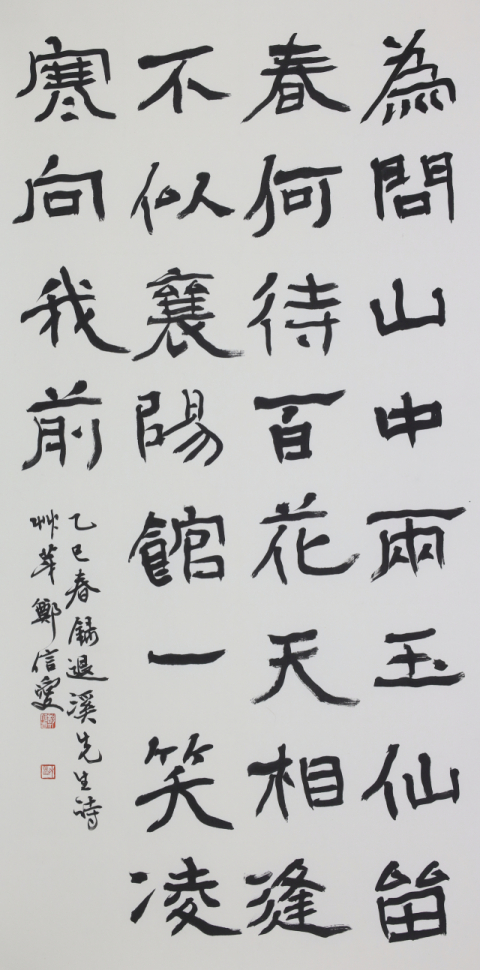 為問山中兩玉仙留
春何待百花天相逢
不似襄陽館一笑凌
寒向我前
乙巳春錄退溪先生詩
艸鄭信愛